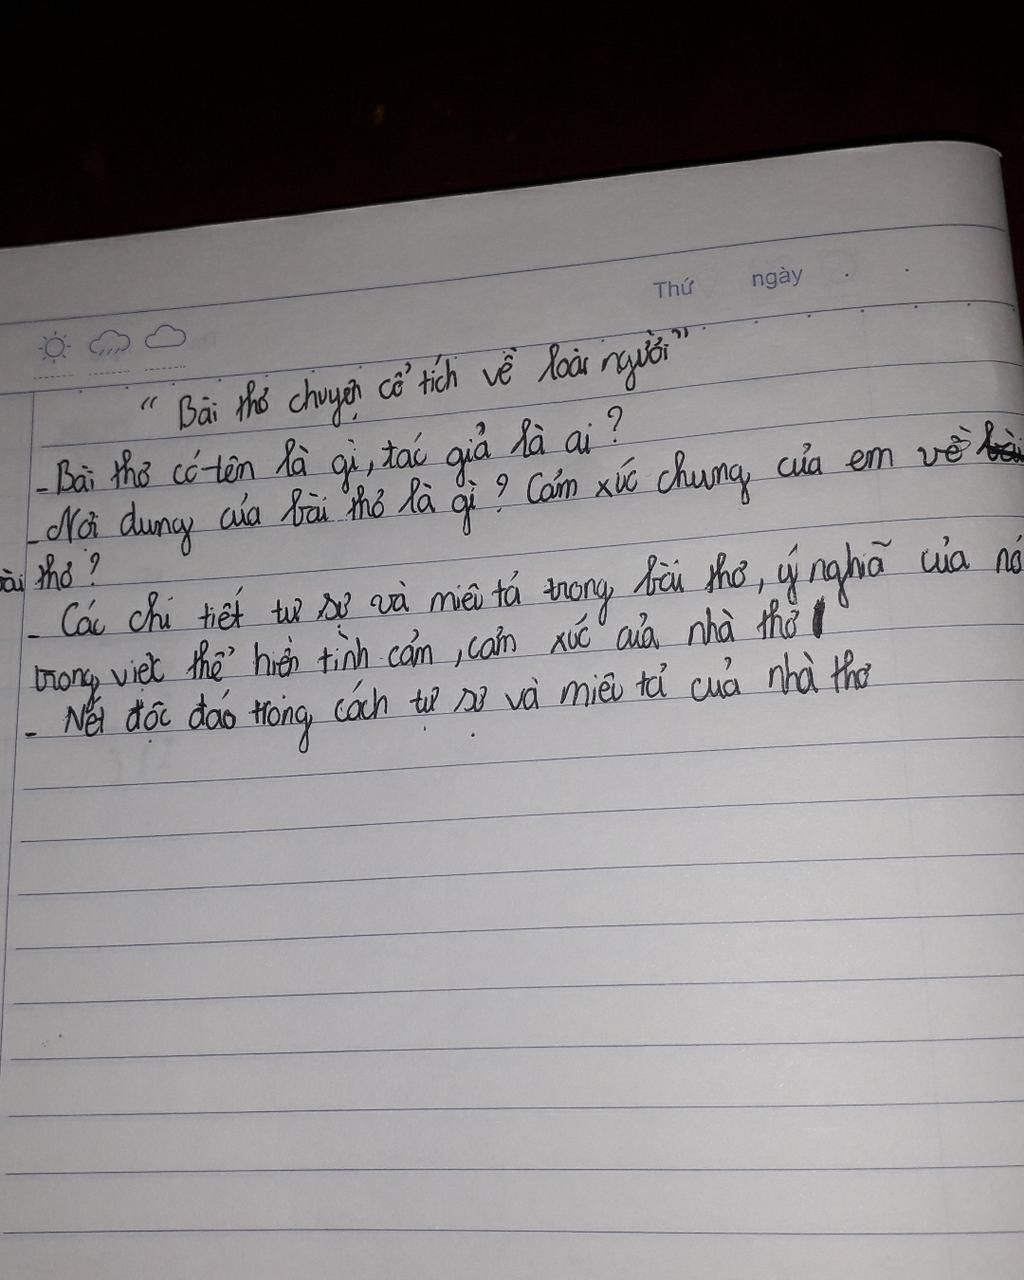 Thứ ngày
“Bài thơ chuyện cổ tích về loài người”
- Bài thơ có tên là gì, tác giả là ai?
- Nội dung của bài thơ là gì? Cảm xúc chung của em về
bài thơ?
- Các chi tiết tự sự và miêu tả trong bài thơ, ý nghĩa của nó
trong việc thể hiện tình cảm, cảm xúc của nhà thơ
- Nét độc đáo trong cách tự sự và miêu tả của nhà thơ